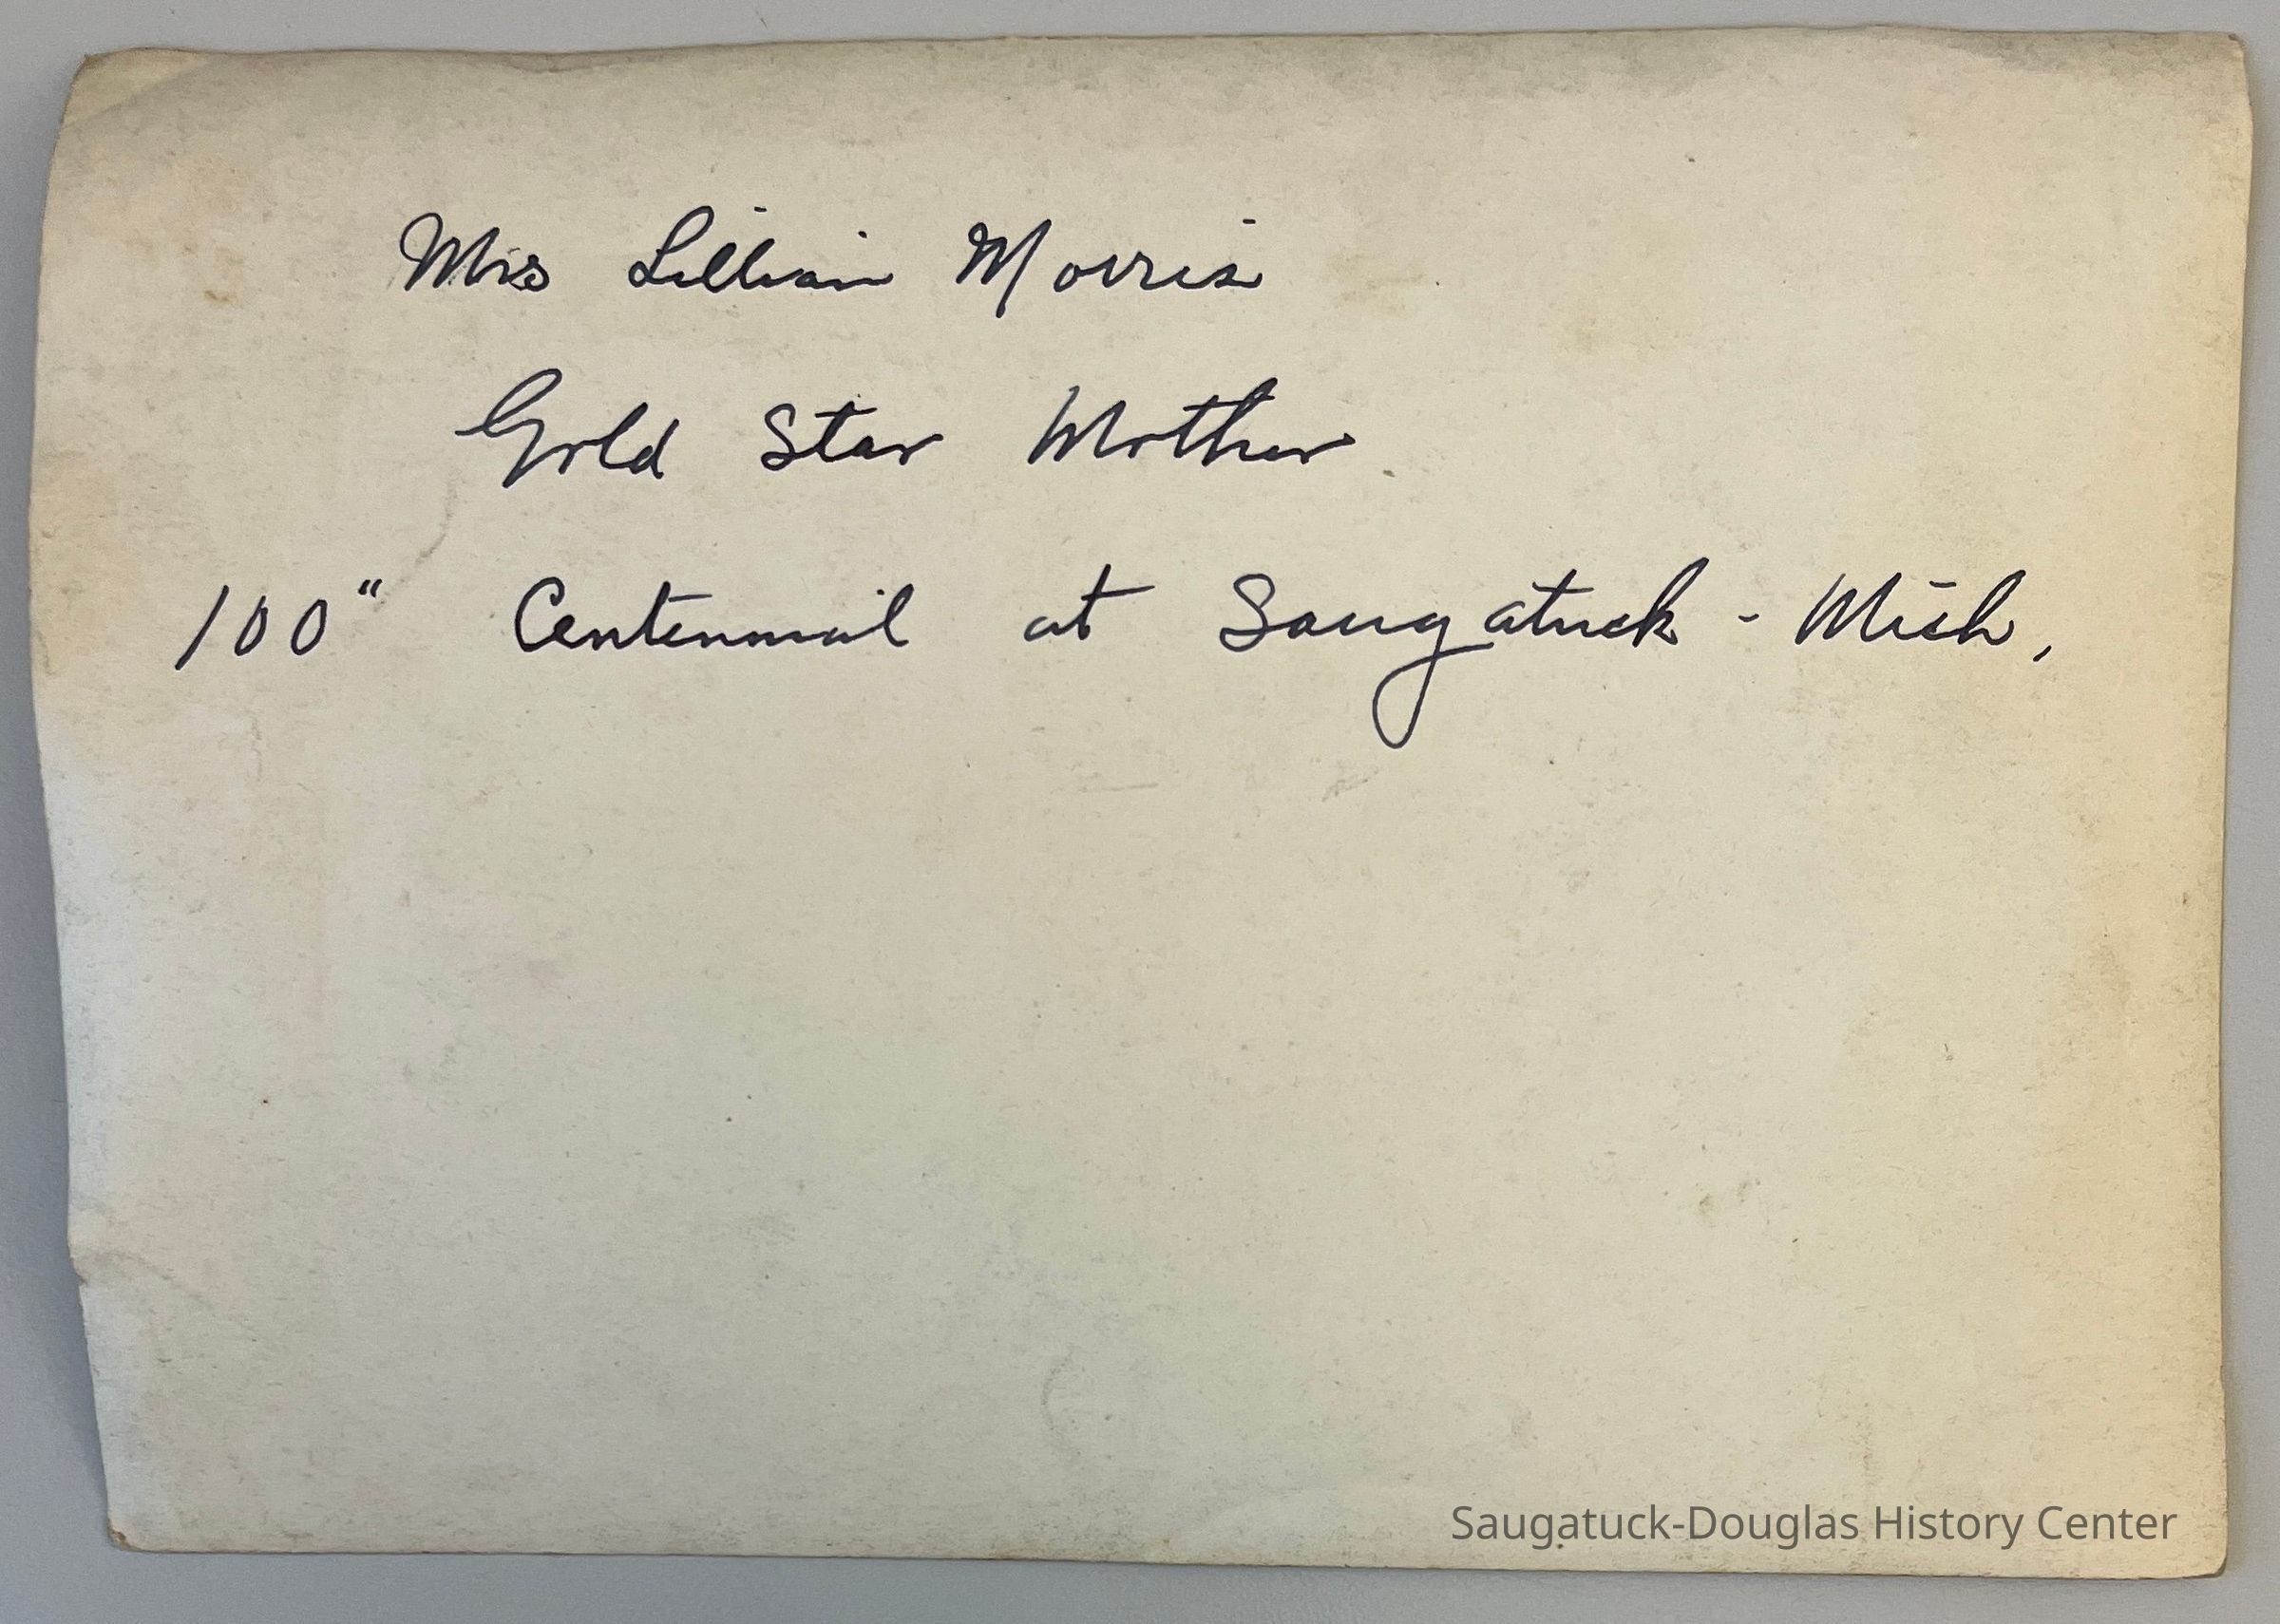 Mrs Lillian Morris
Gold Star Mother
100" Centennial at Saugatuck - Mich,
Saugatuck-Douglas History Center